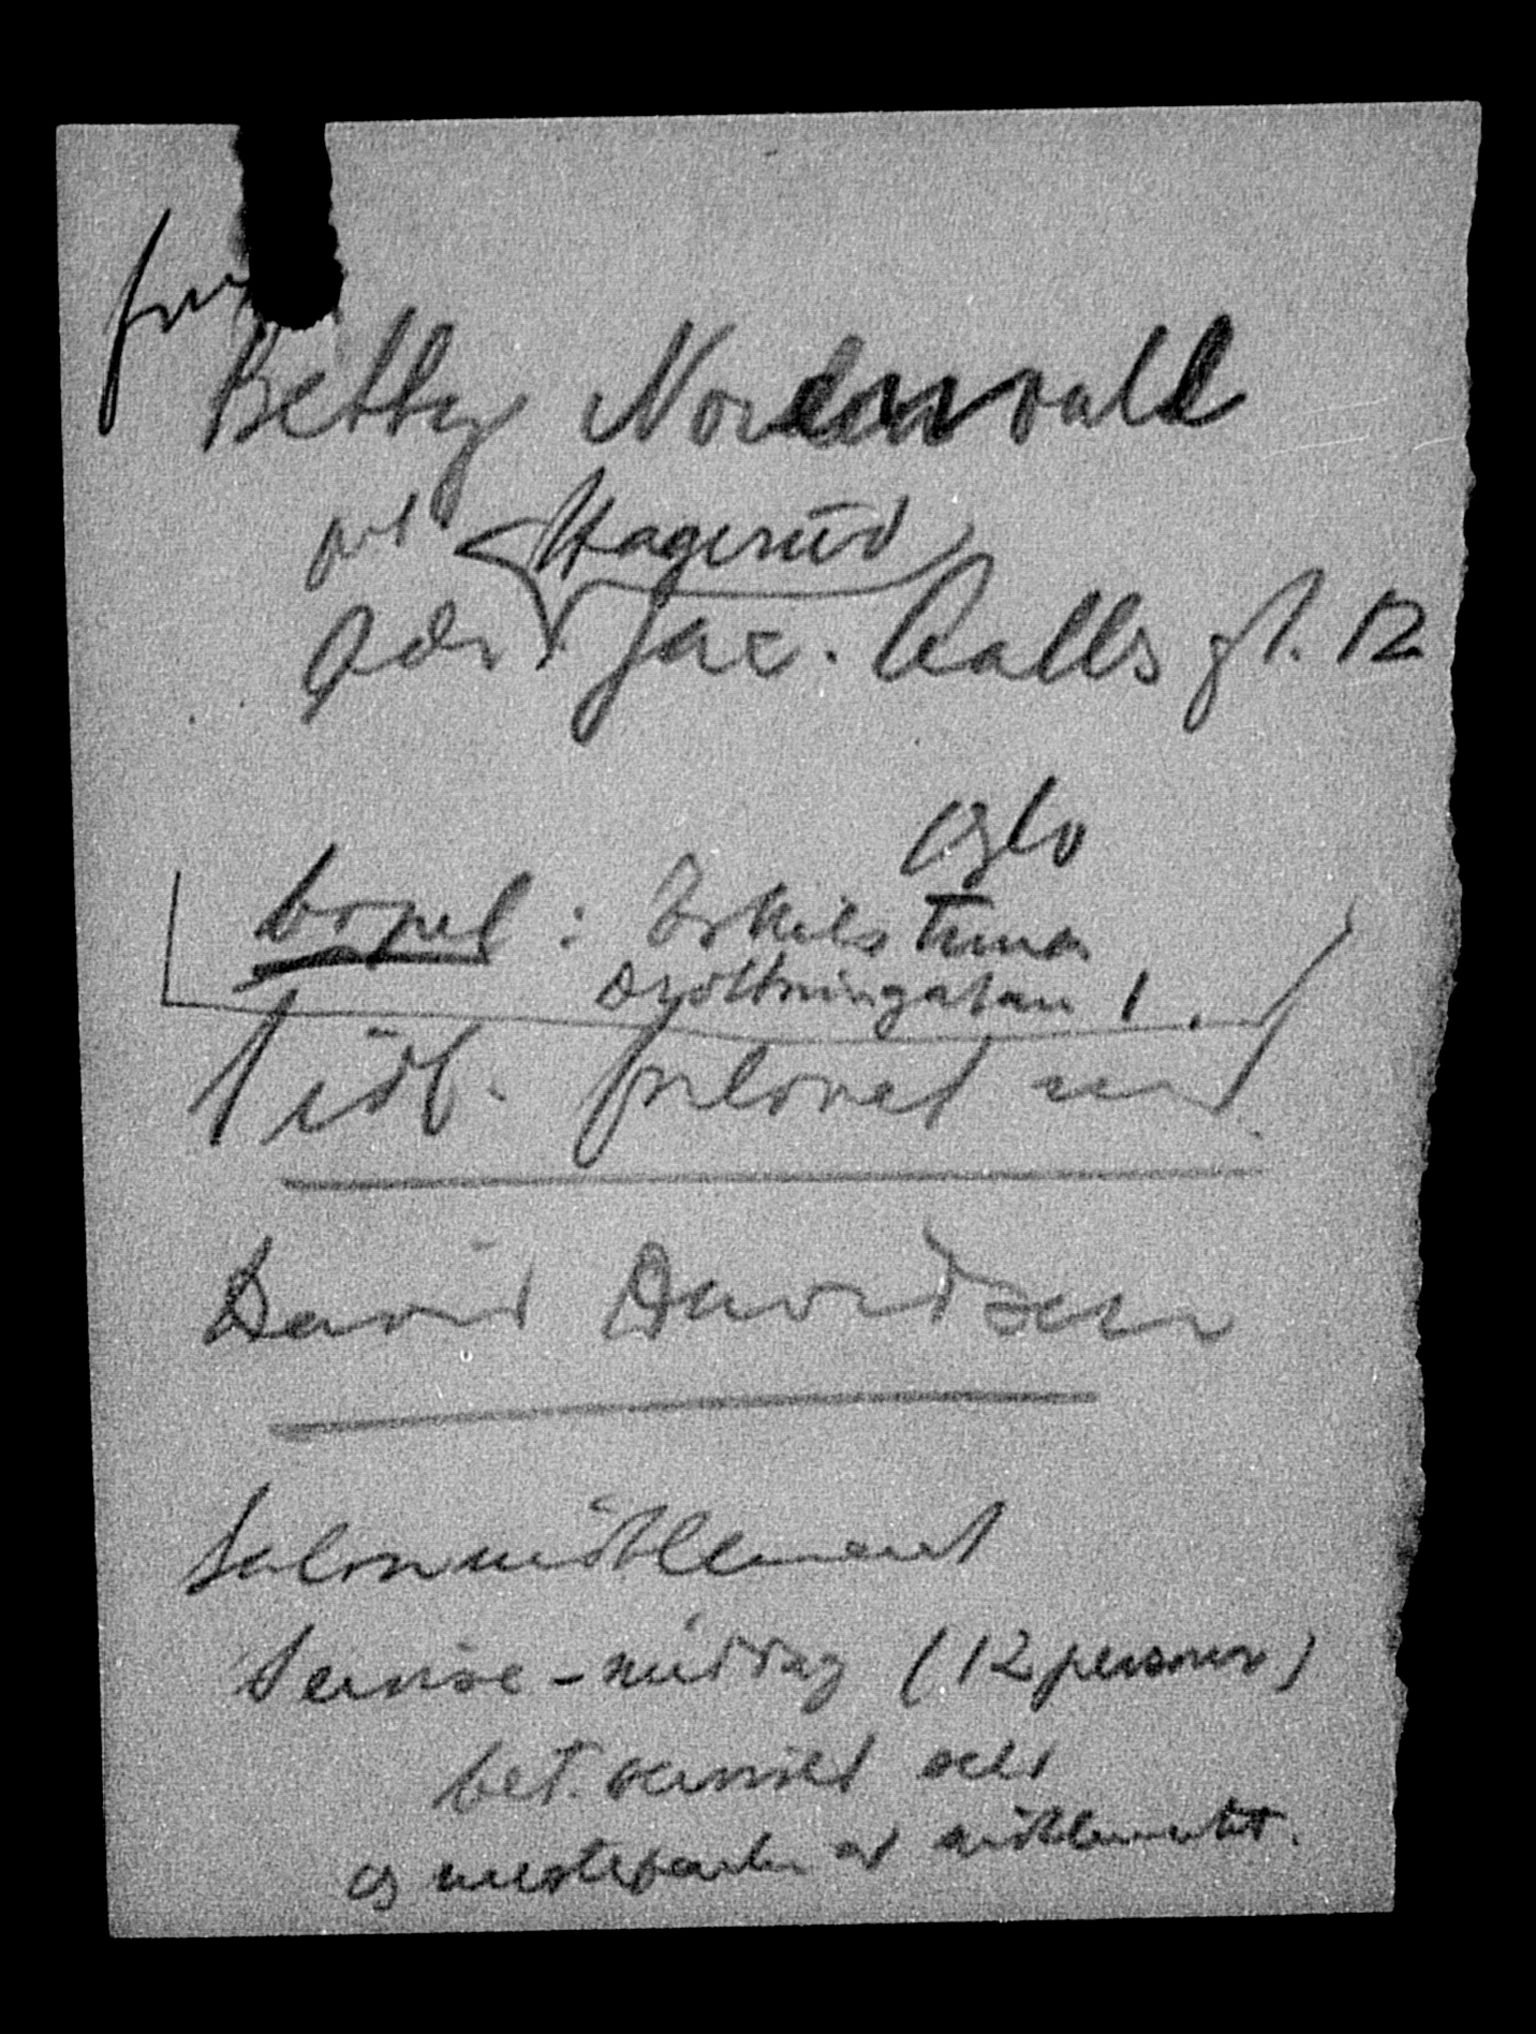 fru
Betty Nordenvall
pr. adr. Hagerud
Jac. Aalls gt. 12
Oslo
bopel: Eskilstuna
Drottningatan 1.
Tidl. forlovet med
David Davidsen
Salonmöblement
Servise - middag (12 personer)
bet. serviset selv
og mesteparten av möblementet.